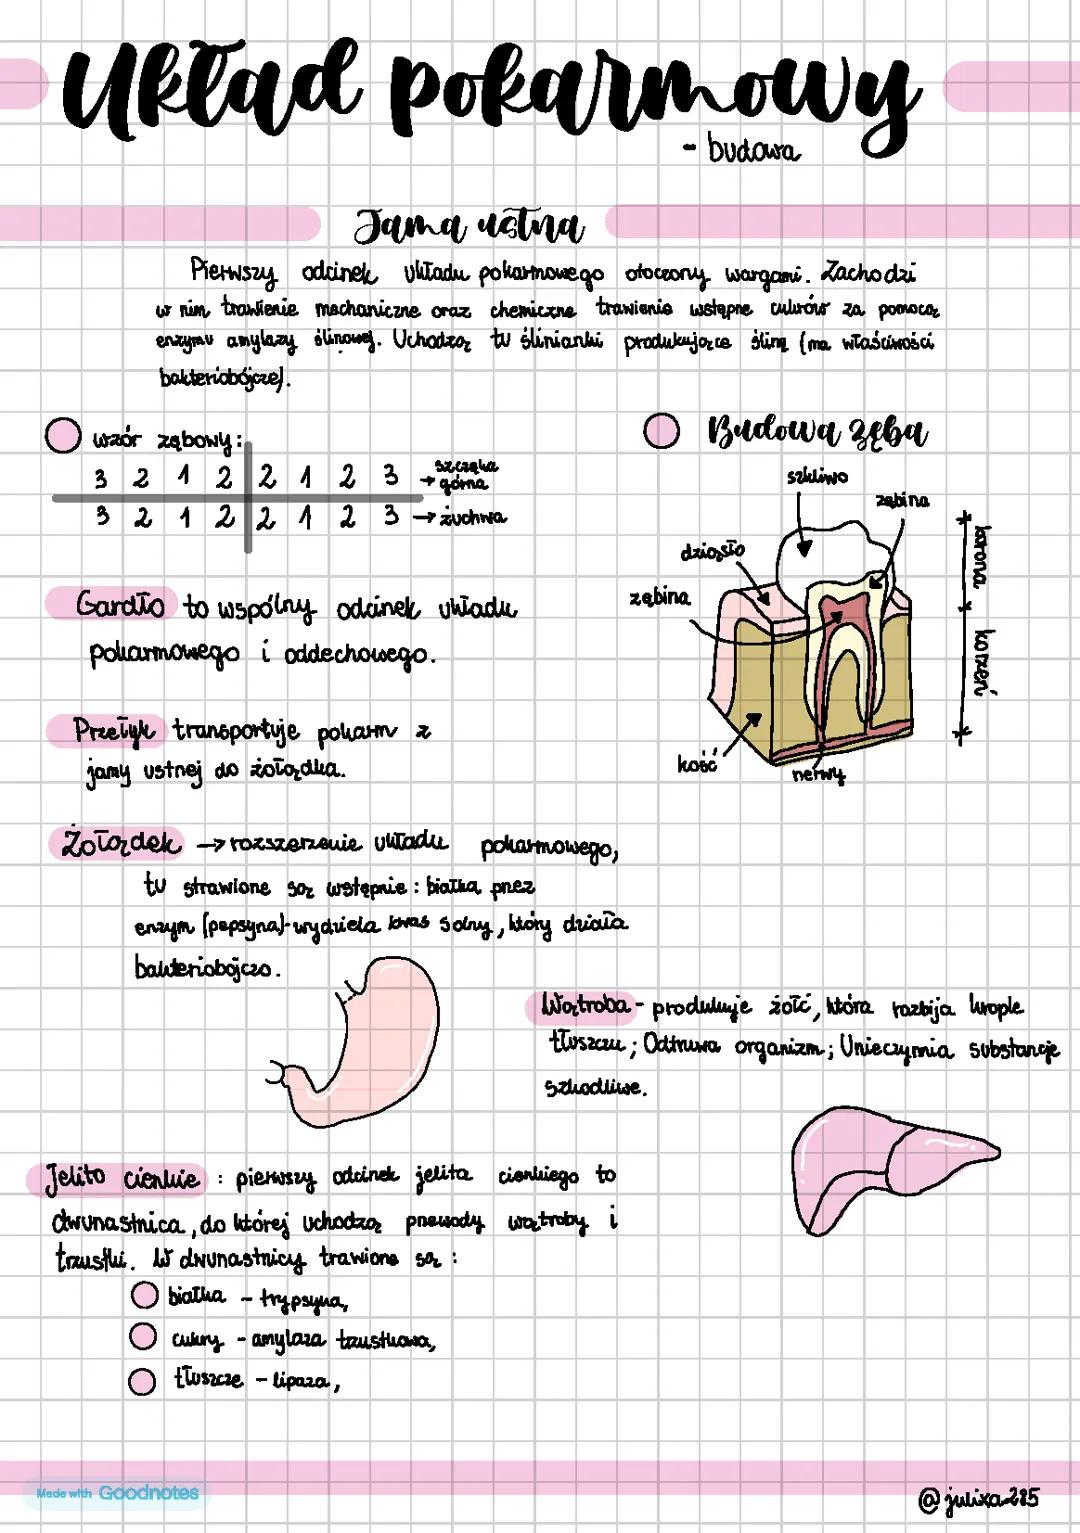 Układ pokarmowy
- budowa
Jama ustna
Pierwszy odcinek układu pokarmowego otoczony wargami. Zachodzi
w nim trawienie mechaniczne oraz chemiczne trawienie wstępne cukrów za pomocą
enzymu amylazy ślinowej. Uchodzą tu ślinianki produkujące ślinę (ma właściwości
bakteriobójcze).
wzór zębowy:
3 2 1 2 2 1 2 3 → szczęka
górna
3 2 1 2 2 1 2 3 → żuchwa
Budowa zęba
szkliwo
zębina
dziąsło
zębina
korona
korzeń
kość
nerwy
Gardło to wspólny odcinek układu
pokarmowego i oddechowego.
Przełyk transportuje pokarm z
jamy ustnej do żołądka.
Żołądek → rozszerzenie układu pokarmowego,
tu strawione są wstępnie: białka przez
enzym (pepsyna)-wydziela kwas solny, który działa
bakteriobójczo.
Wątroba - produkuje żółć, która rozbija krople
tłuszczu; Odtruwa organizm; Unieczynnia substancje
szkodliwe.
Jelito cienkie : pierwszy odcinek jelita cienkiego to
dwunastnica, do której uchodzą przewody wątroby i
trzustki. W dwunastnicy trawione są :
białka - trypsyna,
cukry - amylaza trzustkowa,
tłuszcze - lipaza,
Made with Goodnotes
@julixa_285